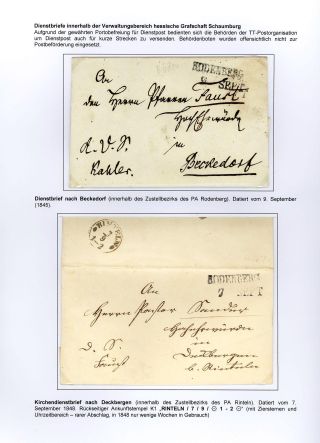 Dienstbriefe innerhalb der Verwaltungsbereich hessische Grafschaft Schaumburg
Aufgrund der gewährten Portobefreiung für Dienstpost bedienten sich die Behörden der TT-Postorganisation
um Dienstpost auch für kurze Strecken zu versenden. Behördenboten wurden offensichtlich nicht zur
Postbeförderung eingesetzt.
RODENBERG
9 SEPT
An
den Herrn Pfarrer Faust
Hochehrwürden
in
K. V. S.
Beckedorf
Dienstbrief nach Beckedorf (innerhalb des Zustellbezirks des PA Rodenberg). Datiert vom 9. September
(1845).
RINTELN
7
9
1-2
RODENBERG
7 SEPT
An
Herrn Pastor
Hochehrwürden
in
D. S.
Faust
Deckbergen
b. Rinteln
Kirchendienstbrief nach Deckbergen (innerhalb des Zustellbezirks des PA Rinteln). Datiert vom 7.
September 1848. Rückseitiger Ankunftstempel K1 „RINTELN / 7 / 9 / ⊙ 1 - 2“ (mit Ziersternen und
Uhrzeitbereich – rarer Abschlag, in 1848 nur wenige Wochen in Gebrauch)